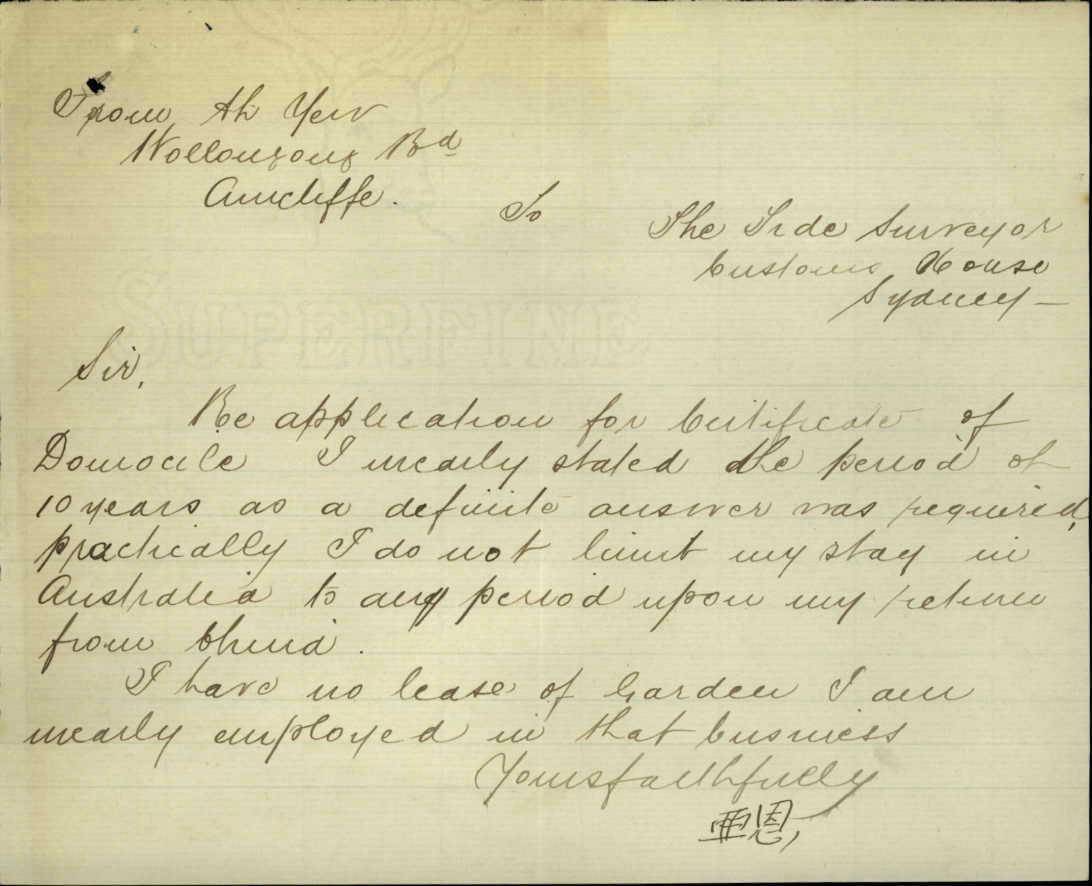 From Ah Yew
Wollongong Rd
Arncliffe.
To
The Tide Surveyor
Customs House
Sydney —
SUPERFINE
Sir,
Re application for Certificate of
Domocile I mearly stated the period of
10 years as a definite answer was required,
practically I do not limit my stay in
Australia to any period upon my return
from China.
I have no lease of Garden I am
mearly employed in that business
Yours faithfully
亜恩